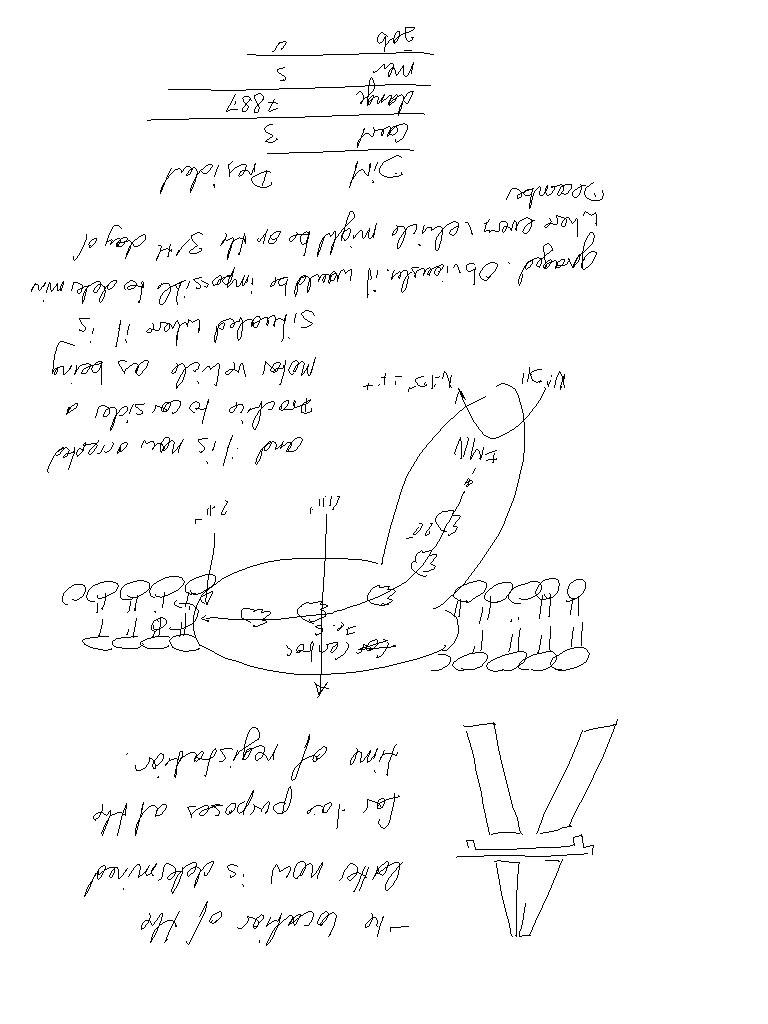 The location of the
latter now is determined
for tax purposes at the
time of registration.
Center
EMIN
and it is now accepted
practice to consider a
motor vehicle as being
situated where it is
garaged. Obviously, it would be impossible to determin
where every vehicle might be on the 31st day of
December
President
Card 3
dange 7887
mer 5
Job u